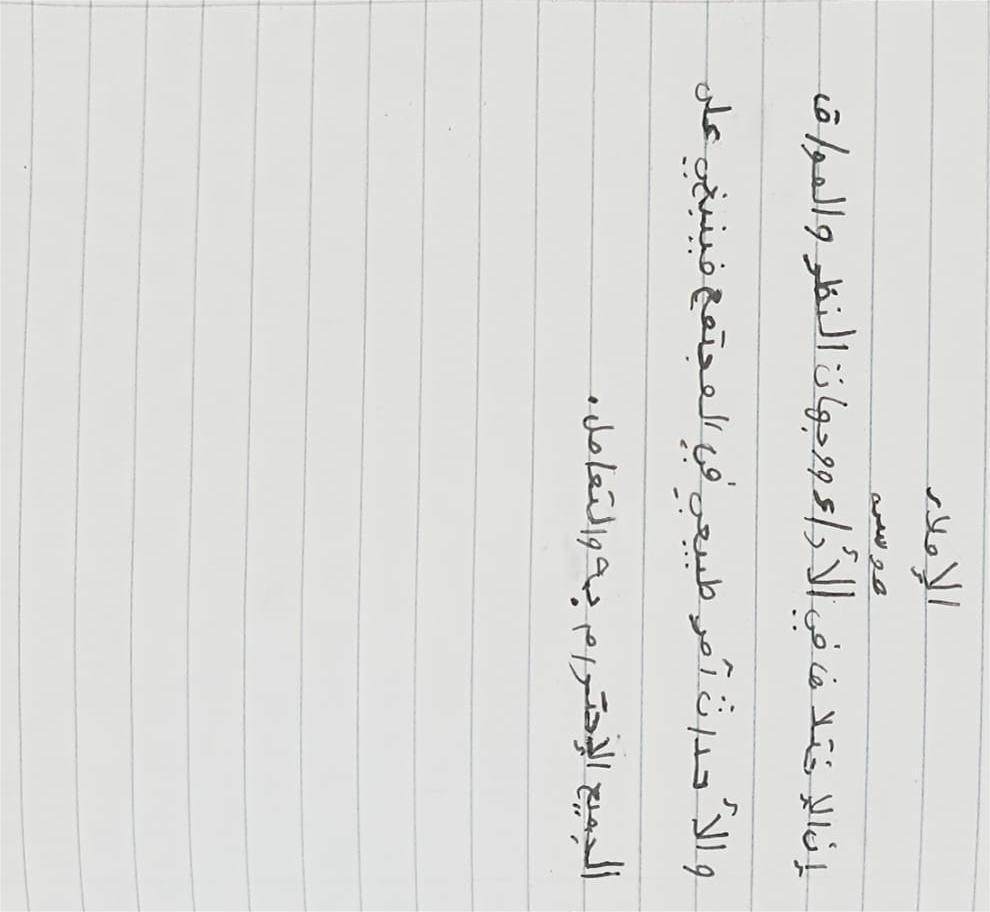 الإملاء
موسى
إن الإختلاف في الأراء ووجهات النظر والمواق
والأحداث أمر طبيعي في المجتمع فينبغي على
الجميع الإحترام به والتعامل.